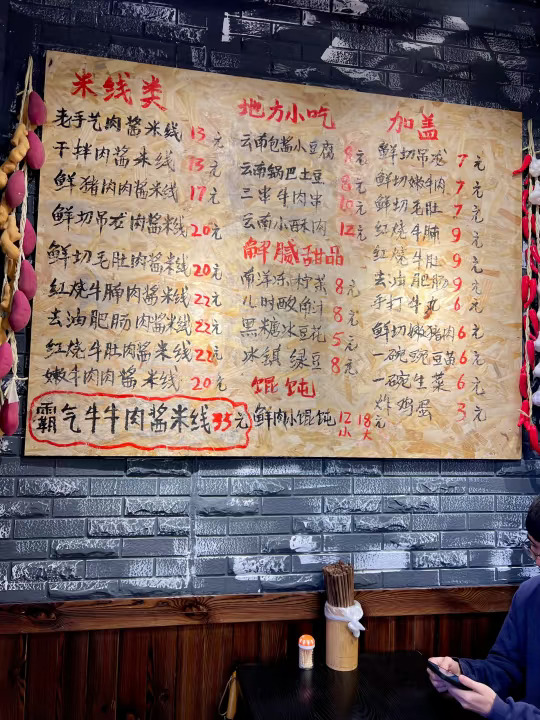 米线类
老手艺肉酱米线 13元
干拌肉酱米线 13元
鲜猪肉肉酱米线 17元
鲜切吊龙肉酱米线 20元
鲜切毛肚肉酱米线 20元
红烧牛腩肉酱米线 22元
去油肥肠肉酱米线 22元
红烧牛肚肉酱米线 22元
嫩牛肉肉酱米线 20元
霸气牛牛肉酱米线 35元
地方小吃
云南包酱小豆腐 8元
云南锅巴土豆 8元
三串牛肉串 10元
云南小酥肉 12元
解腻甜品
南洋冻柠茶 8元
儿时酸角汁 8元
黑糖冰豆花 5元
冰镇绿豆 8元
馄饨
鲜肉小馄饨 12 18元
小 大
加盖
鲜切吊龙 7元
鲜切嫩牛肉 7元
鲜切毛肚 7元
红烧牛腩 9元
红烧牛肚 9元
去油肥肠 9元
手打牛丸 6元
鲜切嫩猪肉 6元
一碗豌豆苗 6元
一碗生菜 6元
炸鸡蛋 3元